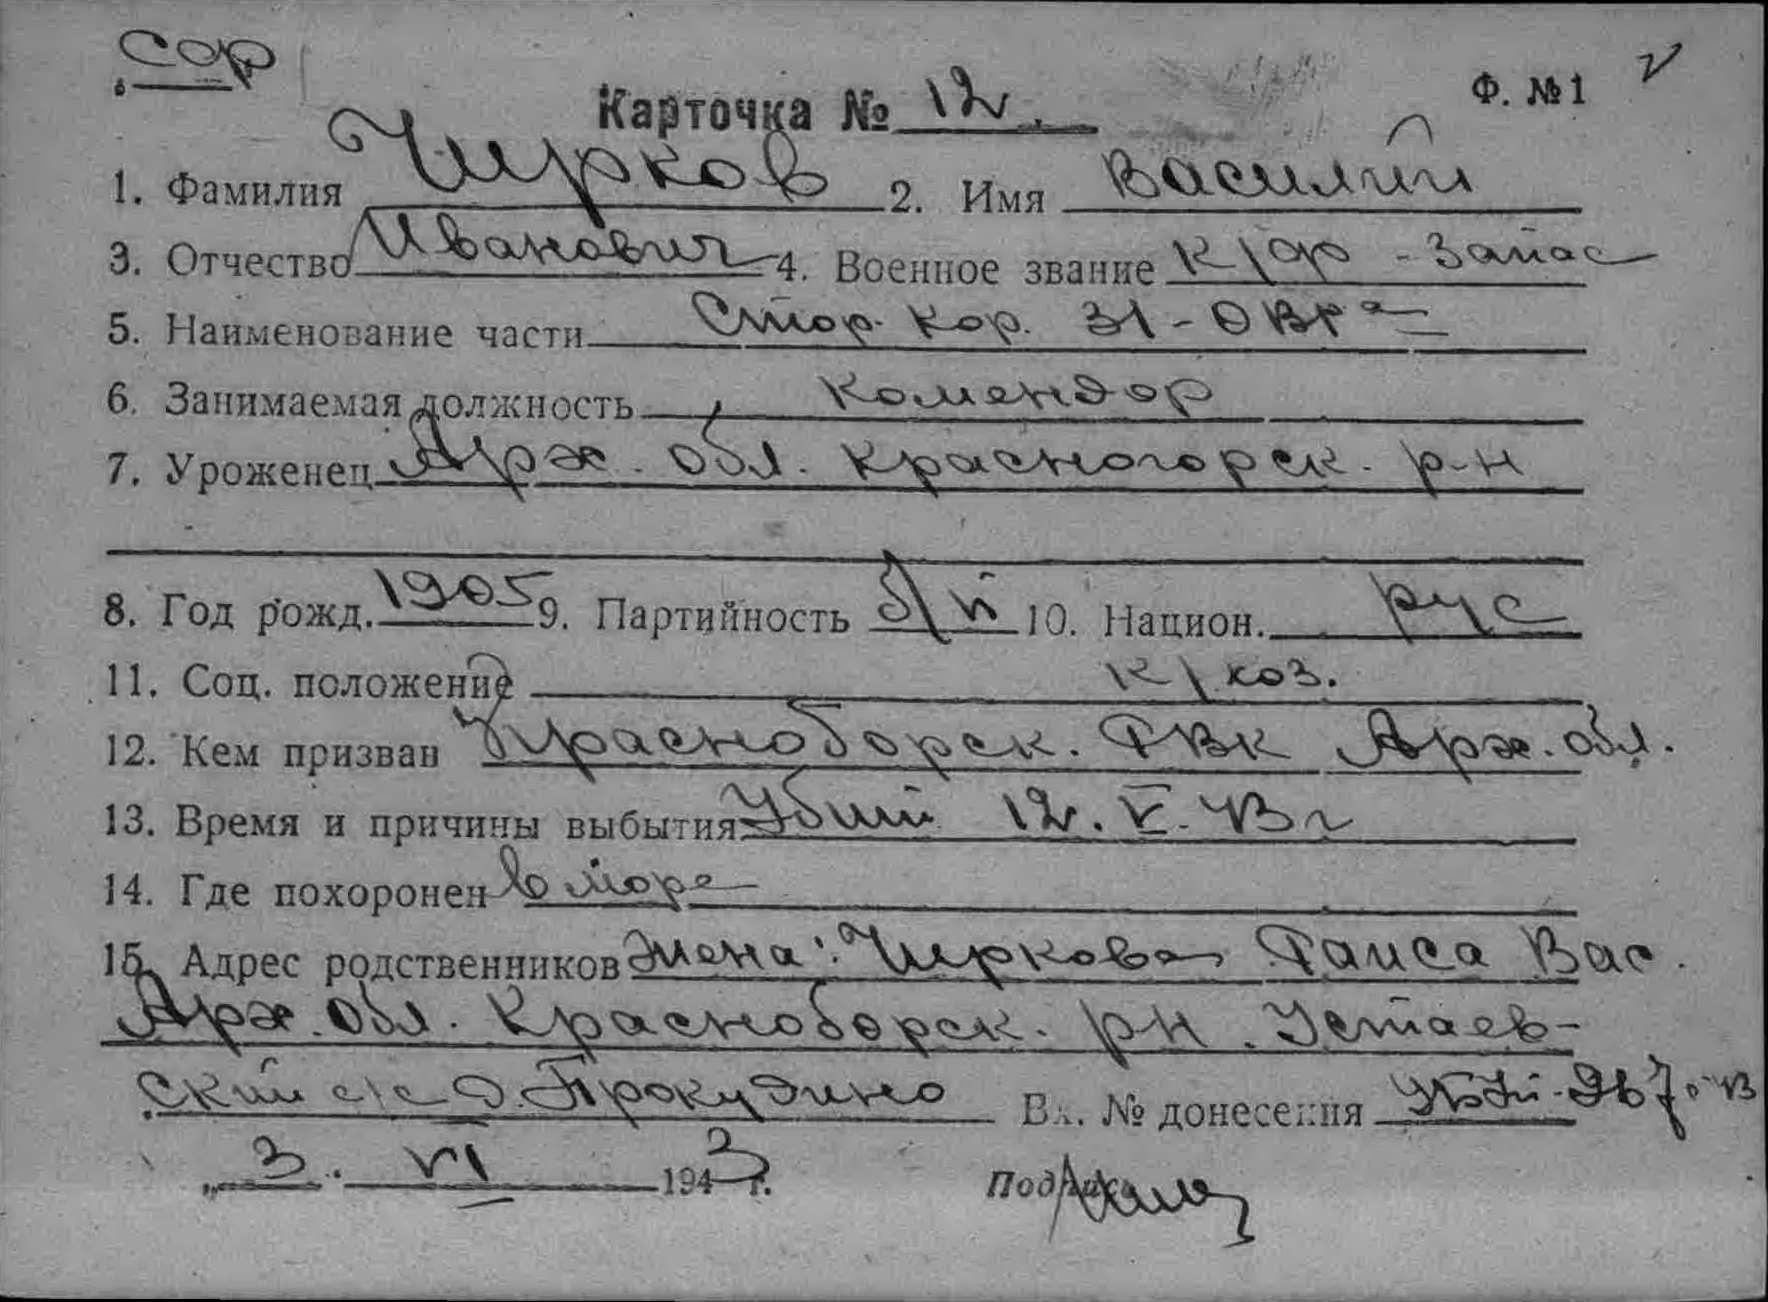 сор
Карточка № 12. Ф. № 1 V
1. Фамилия Чирков 2. Имя Василий
3. Отчество Иванович 4. Военное звание к/фр - запас
5. Наименование части Стор. кор. 31 - ОВРа
6. Занимаемая должность комендор
7. Уроженец Арх. обл. Красногорск. р-н
8. Год рожд. 1905 9. Партийность б/п 10. Национ. рус
11. Соц. положение к/хоз.
12. Кем призван Красноборск. РВК Арх. обл.
13. Время и причины выбытия Убит 12. V. 43 г
14. Где похоронен в море
15. Адрес родственников жена: Чиркова Раиса Вас.
Арх. обл. Красноборск. рн. Устаев-
ский с/с д. Прокудино Вх. № донесения
„ 3. VI 1943 г. Подпись